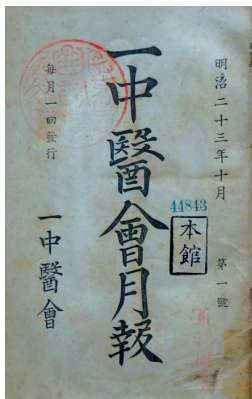 明治二十三年十月
第一號
44843
本館
一中醫會月報
每月一回發行
一中醫會